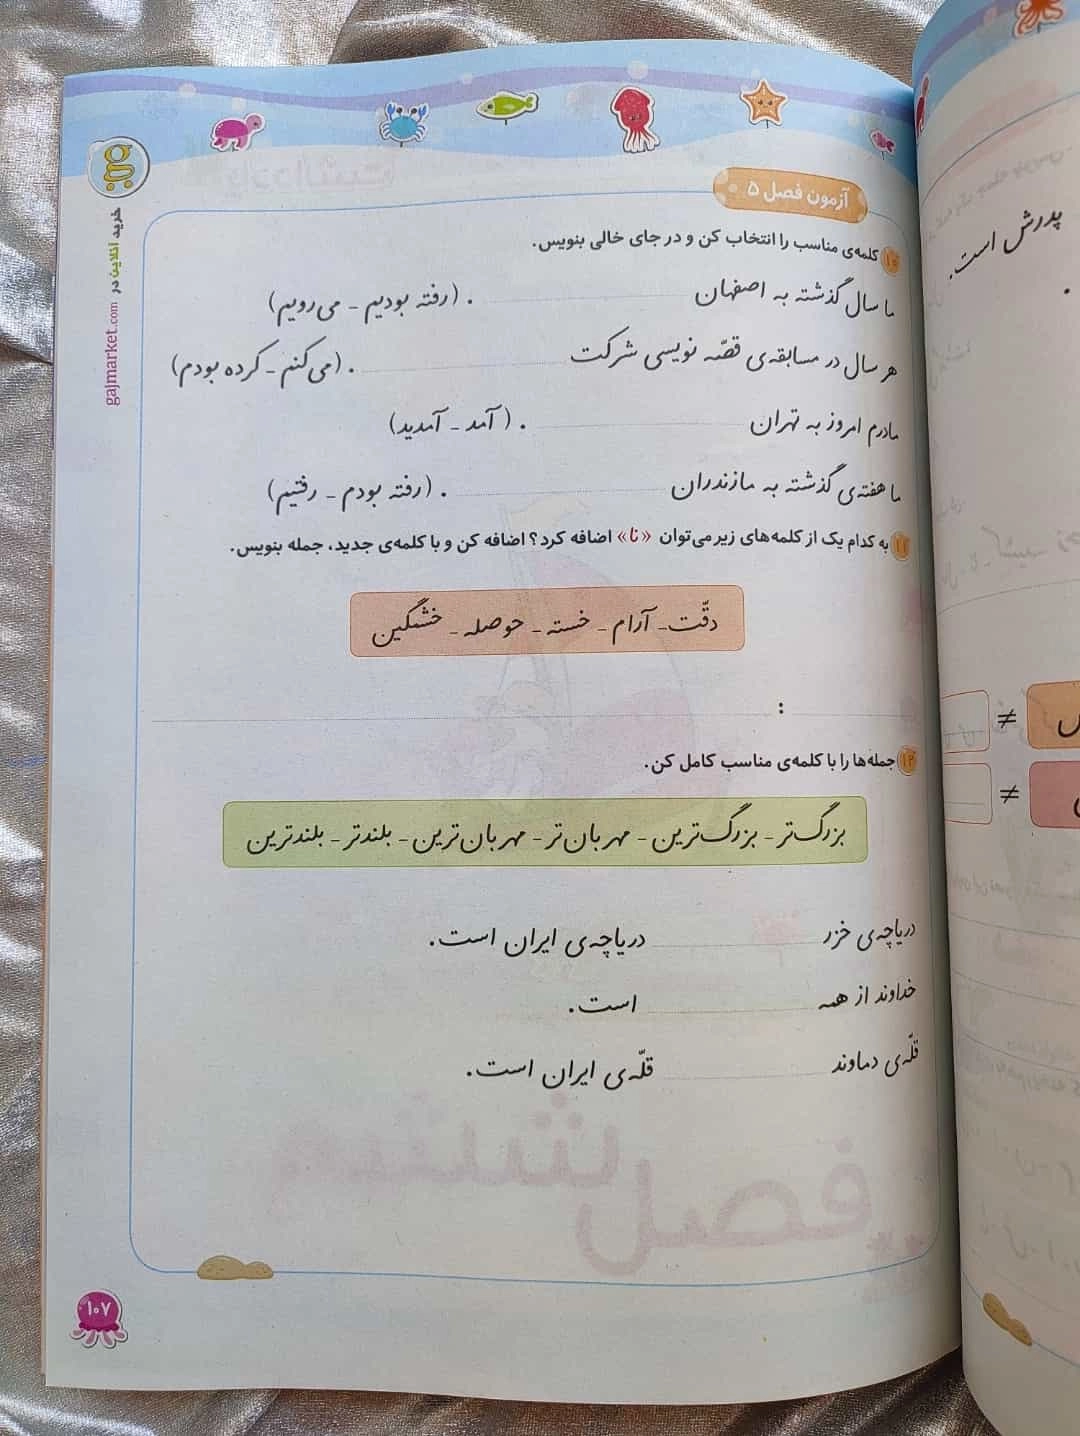 آزمون فصل ۵
۱۰ کلمه‌ی مناسب را انتخاب کن و در جای خالی بنویس.
ما سال گذشته به اصفهان . (رفته بودیم - می‌رویم)
هر سال در مسابقه‌ی قصّه نویسی شرکت . (می‌کنم - کرده بودم)
مادرم امروز به تهران . (آمد - آمدید)
ما هفته‌ی گذشته به مازندران . (رفته بودم - رفتیم)
۱۱ به کدام یک از کلمه‌های زیر می‌توان «نا» اضافه کرد؟ اضافه کن و با کلمه‌ی جدید، جمله بنویس.
دقّت - آرام - خسته - حوصله - خشمگین
:
۱۲ جمله‌ها را با کلمه‌ی مناسب کامل کن.
بزرگ‌تر - بزرگ‌ترین - مهربان‌تر - مهربان‌ترین - بلندتر - بلندترین
دریاچه‌ی خزر دریاچه‌ی ایران است.
خداوند از همه است.
قلّه‌ی دماوند قلّه‌ی ایران است.
۱۰۷
خرید آنلاین در gajmarket.com
پدرش است.
≠
≠